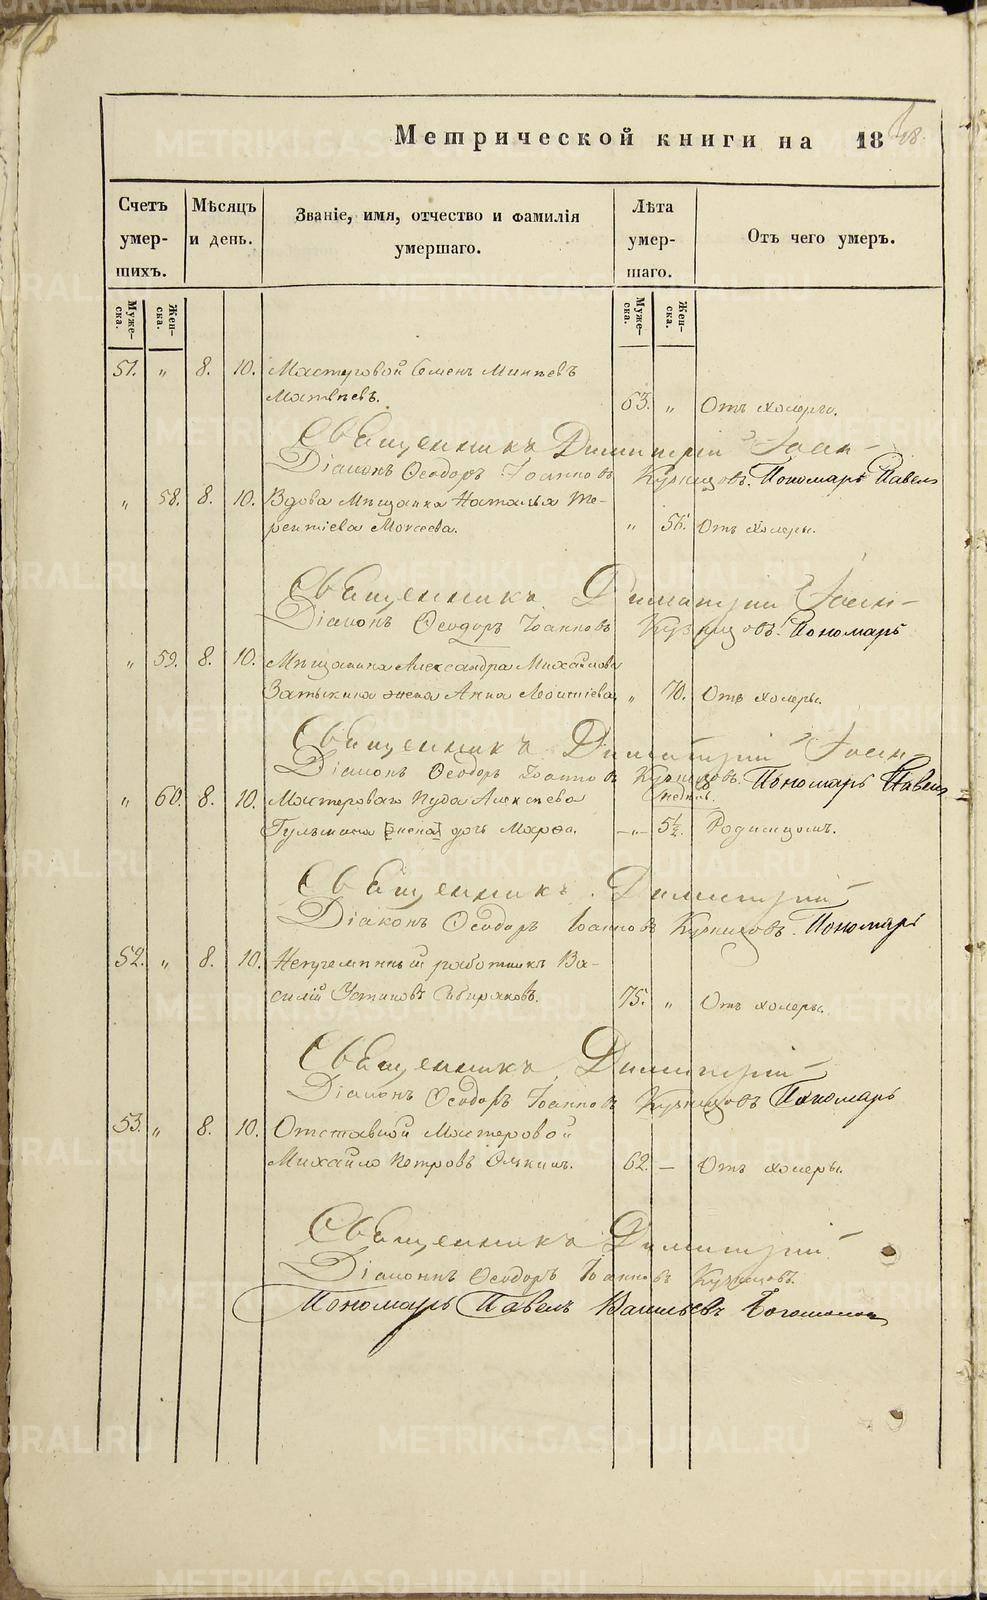 Метрической книги на 18
Счетъ умер- шихъ.
Мѣсяцъ и день.
Званіе, имя, отчество и фамилія умершаго.
Лѣта умер- шаго.
Отъ чего умеръ.
Муже- ска.
Жен- ска.
Муже- ска.
Жен- ска.
51. „ 8. 10. Мастеровой Семенъ
Матвѣевъ. 63. „ Отъ холеры.
Священникъ Димитрій
Діаконъ Ѳеодоръ Іоанновъ Кузнецовъ. Пономарь Павелъ
„ 58. 8. 10. Вдова Мѣщанка Наталья Те-
рентіева Моисеева. „ Отъ холеры.
Священникъ Димитрій
Діаконъ Ѳеодоръ Іоанновъ Кузнецовъ. Пономарь
„ 59. 8. 10. Мѣщанина Александра Михайлова
жена Анна Леонтіева „ 70. Отъ холеры.
Священникъ Димитрій
Діаконъ Ѳеодоръ Іоанновъ Кузнецовъ. Пономарь Павелъ
„ 60. 8. 10. Мастероваго Алексѣева
недѣль.
[жена] дочь Марѳа. –„– 5½. Родимцомъ.
Священникъ Димитрій
Діаконъ Ѳеодоръ Іоанновъ Кузнецовъ. Пономарь
52. „ 8. 10. Непремѣнный работникъ Ва-
силій Устиновъ Сибиряковъ. 75. „ Отъ холеры.
Священникъ Димитрій
Діаконъ Ѳеодоръ Іоанновъ Кузнецовъ Пономарь
53. „ 8. 10. Отставной Мастеровой
Михайло Петровъ 62. – Отъ холеры.
Священникъ Димитрій
Діаконъ Ѳеодоръ Іоанновъ Кузнецовъ.
Пономарь Павелъ Васильевъ
METRIKI.GASO-URAL.RU